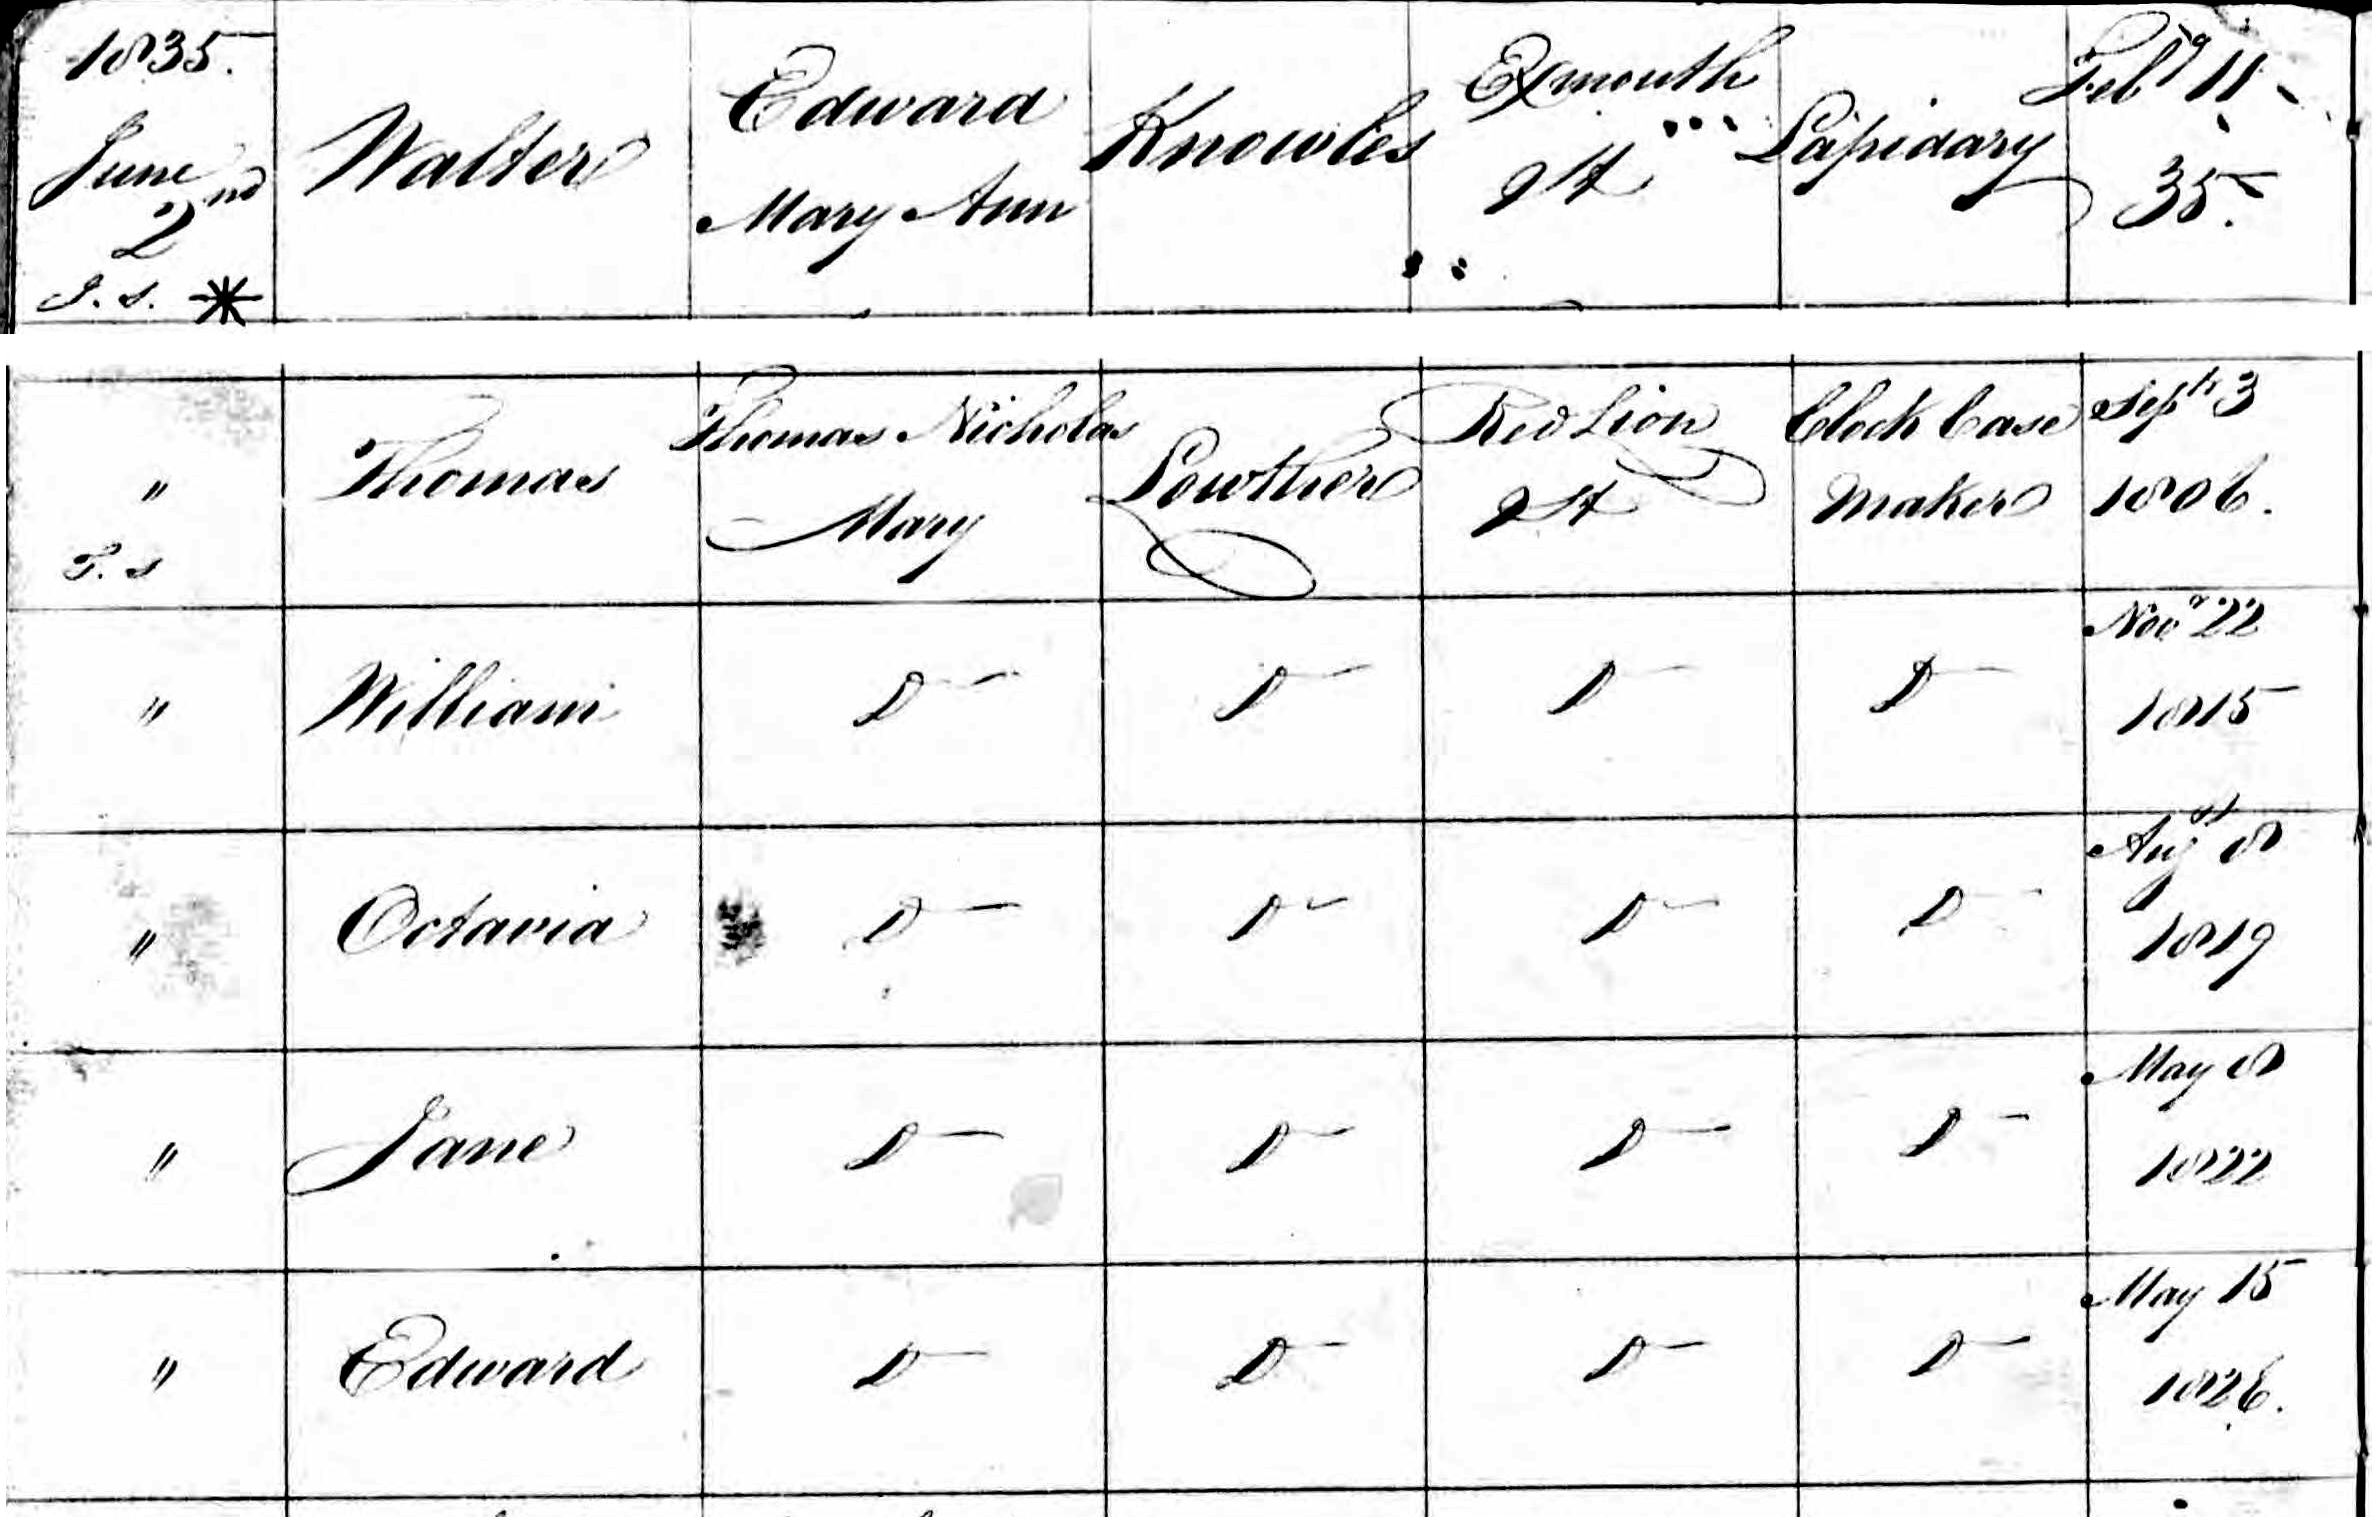 1835. Walter Edward Knowles Exmouth Lapidary Feby 11
June 2nd Mary Ann St 35.
J. S.
" Thomas Thomas Nicholas Lowther Red Lion Clock Case Sepr 3
Mary St Maker 1806.
T. S
" William D D D D Novr 22
1815
" Octavia D D D D Augst 8
1819
" Jane D D D D May 8
1822
" Edward D D D D May 15
1826.